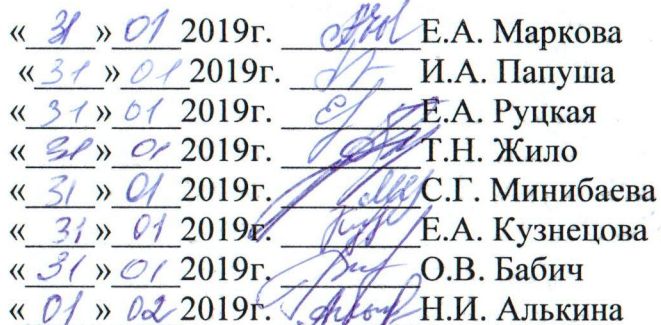 « 31 » 01 2019г. Е.А. Маркова
« 31 » 01 2019г. И.А. Папуша
« 31 » 01 2019г. Е.А. Руцкая
« 31 » 01 2019г. Т.Н. Жило
« 31 » 01 2019г. С.Г. Минибаева
« 31 » 01 2019г. Е.А. Кузнецова
« 31 » 01 2019г. О.В. Бабич
« 01 » 02 2019г. Н.И. Алькина